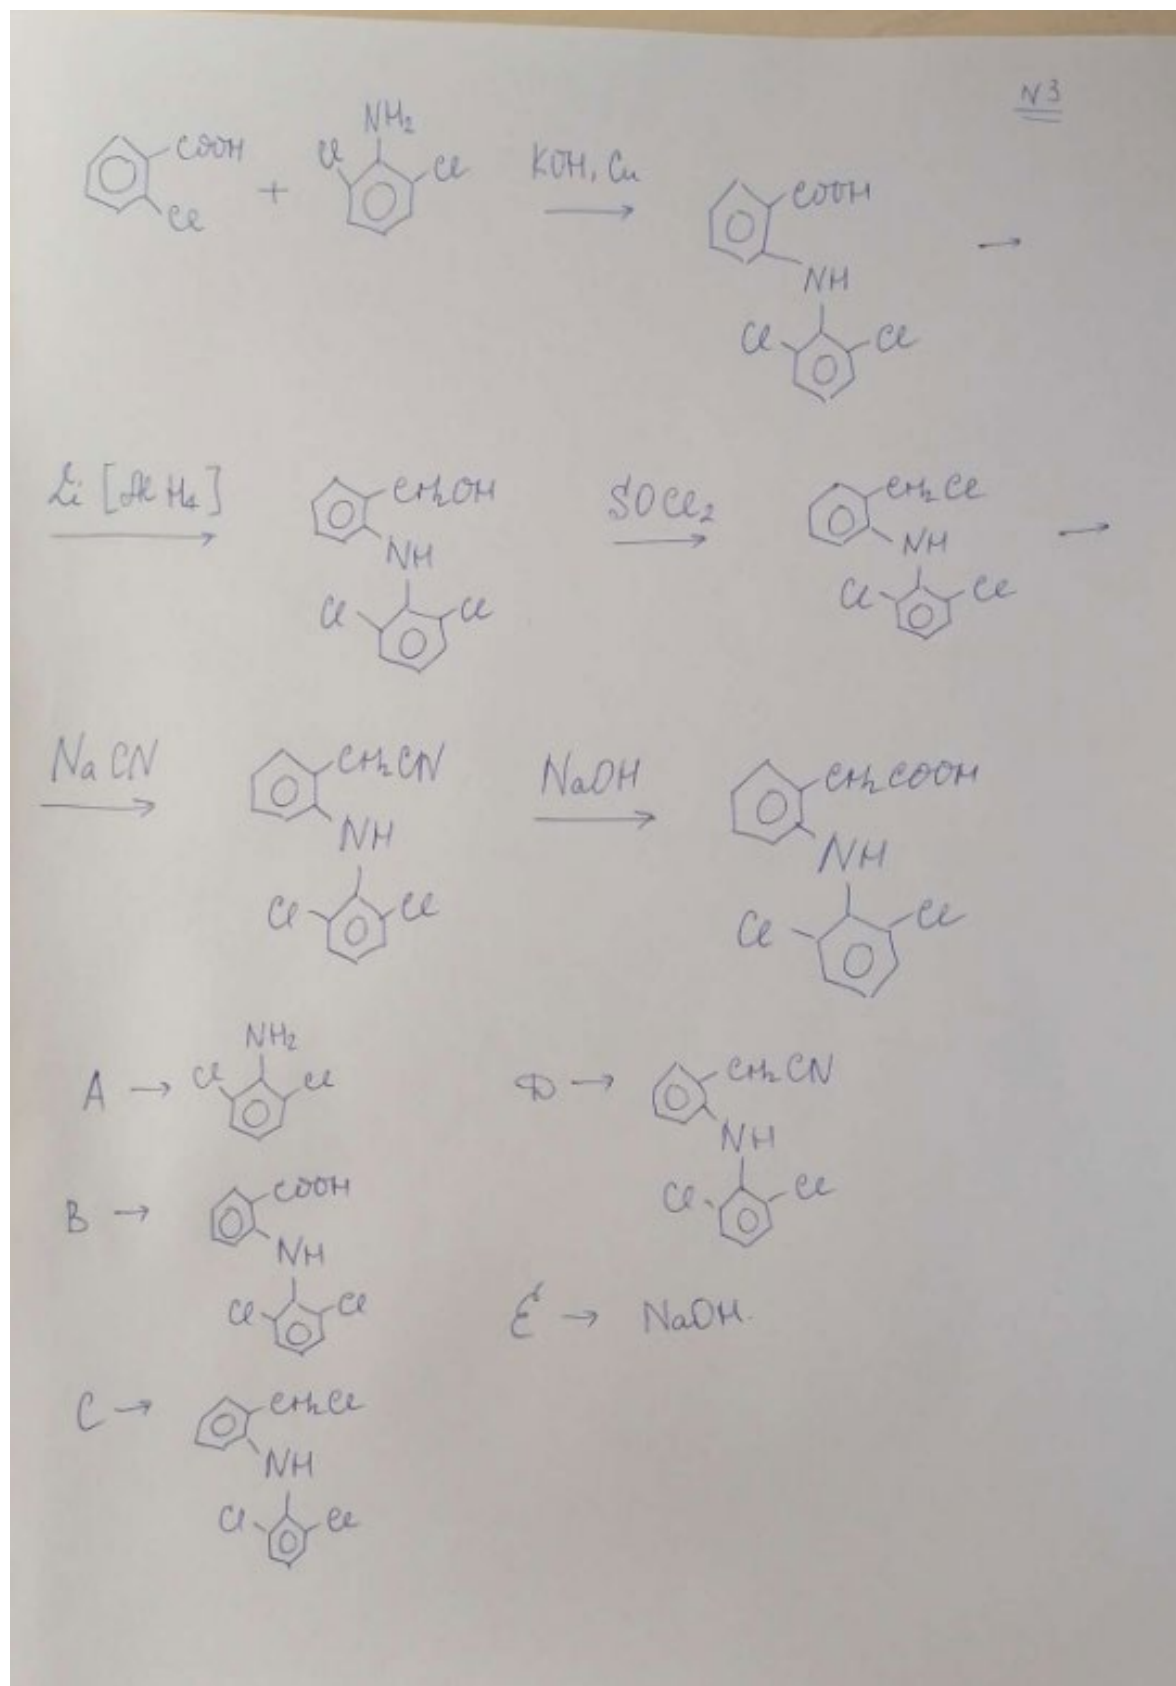 N3
COOH
Cl
+
NH2
Cl
Cl
KOH, Cu
COOH
NH
Cl
Cl
Li [AlH4]
CH2OH
NH
Cl
Cl
SOCl2
CH2Cl
NH
Cl
Cl
NaCN
CH2CN
NH
Cl
Cl
NaOH
CH2COOH
NH
Cl
Cl
A → NH2
Cl
Cl
B → COOH
NH
Cl
Cl
C → CH2Cl
NH
Cl
Cl
D → CH2CN
NH
Cl
Cl
E → NaOH.